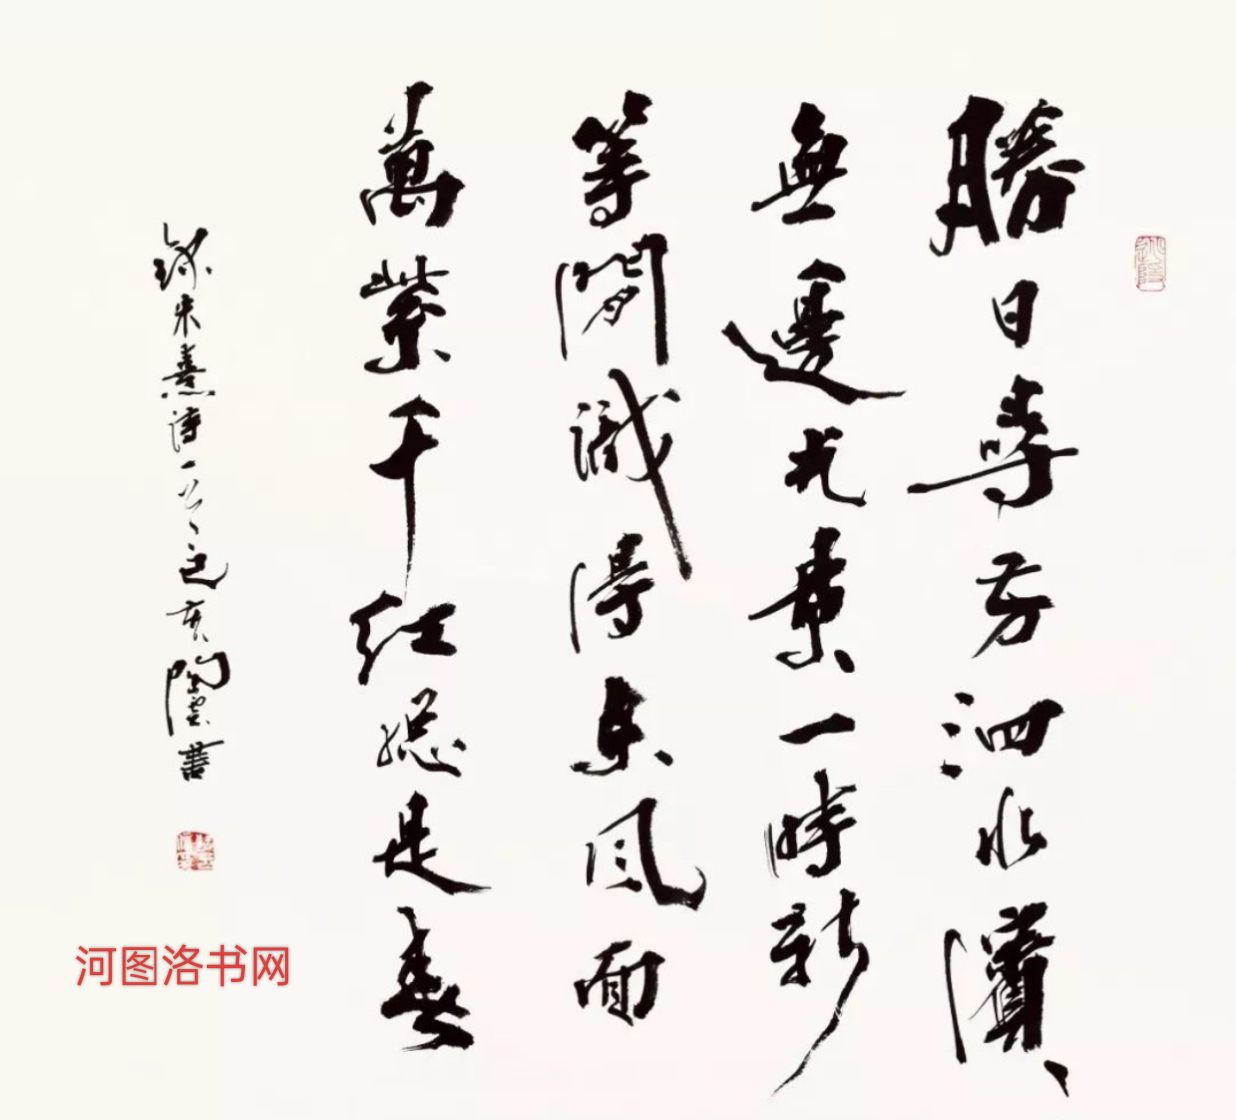 勝日尋芳泗水濱
無邊光景一時新
等閒識得東風面
萬紫千紅總是春
錄朱熹詩一首己亥陶雲書
河图洛书网